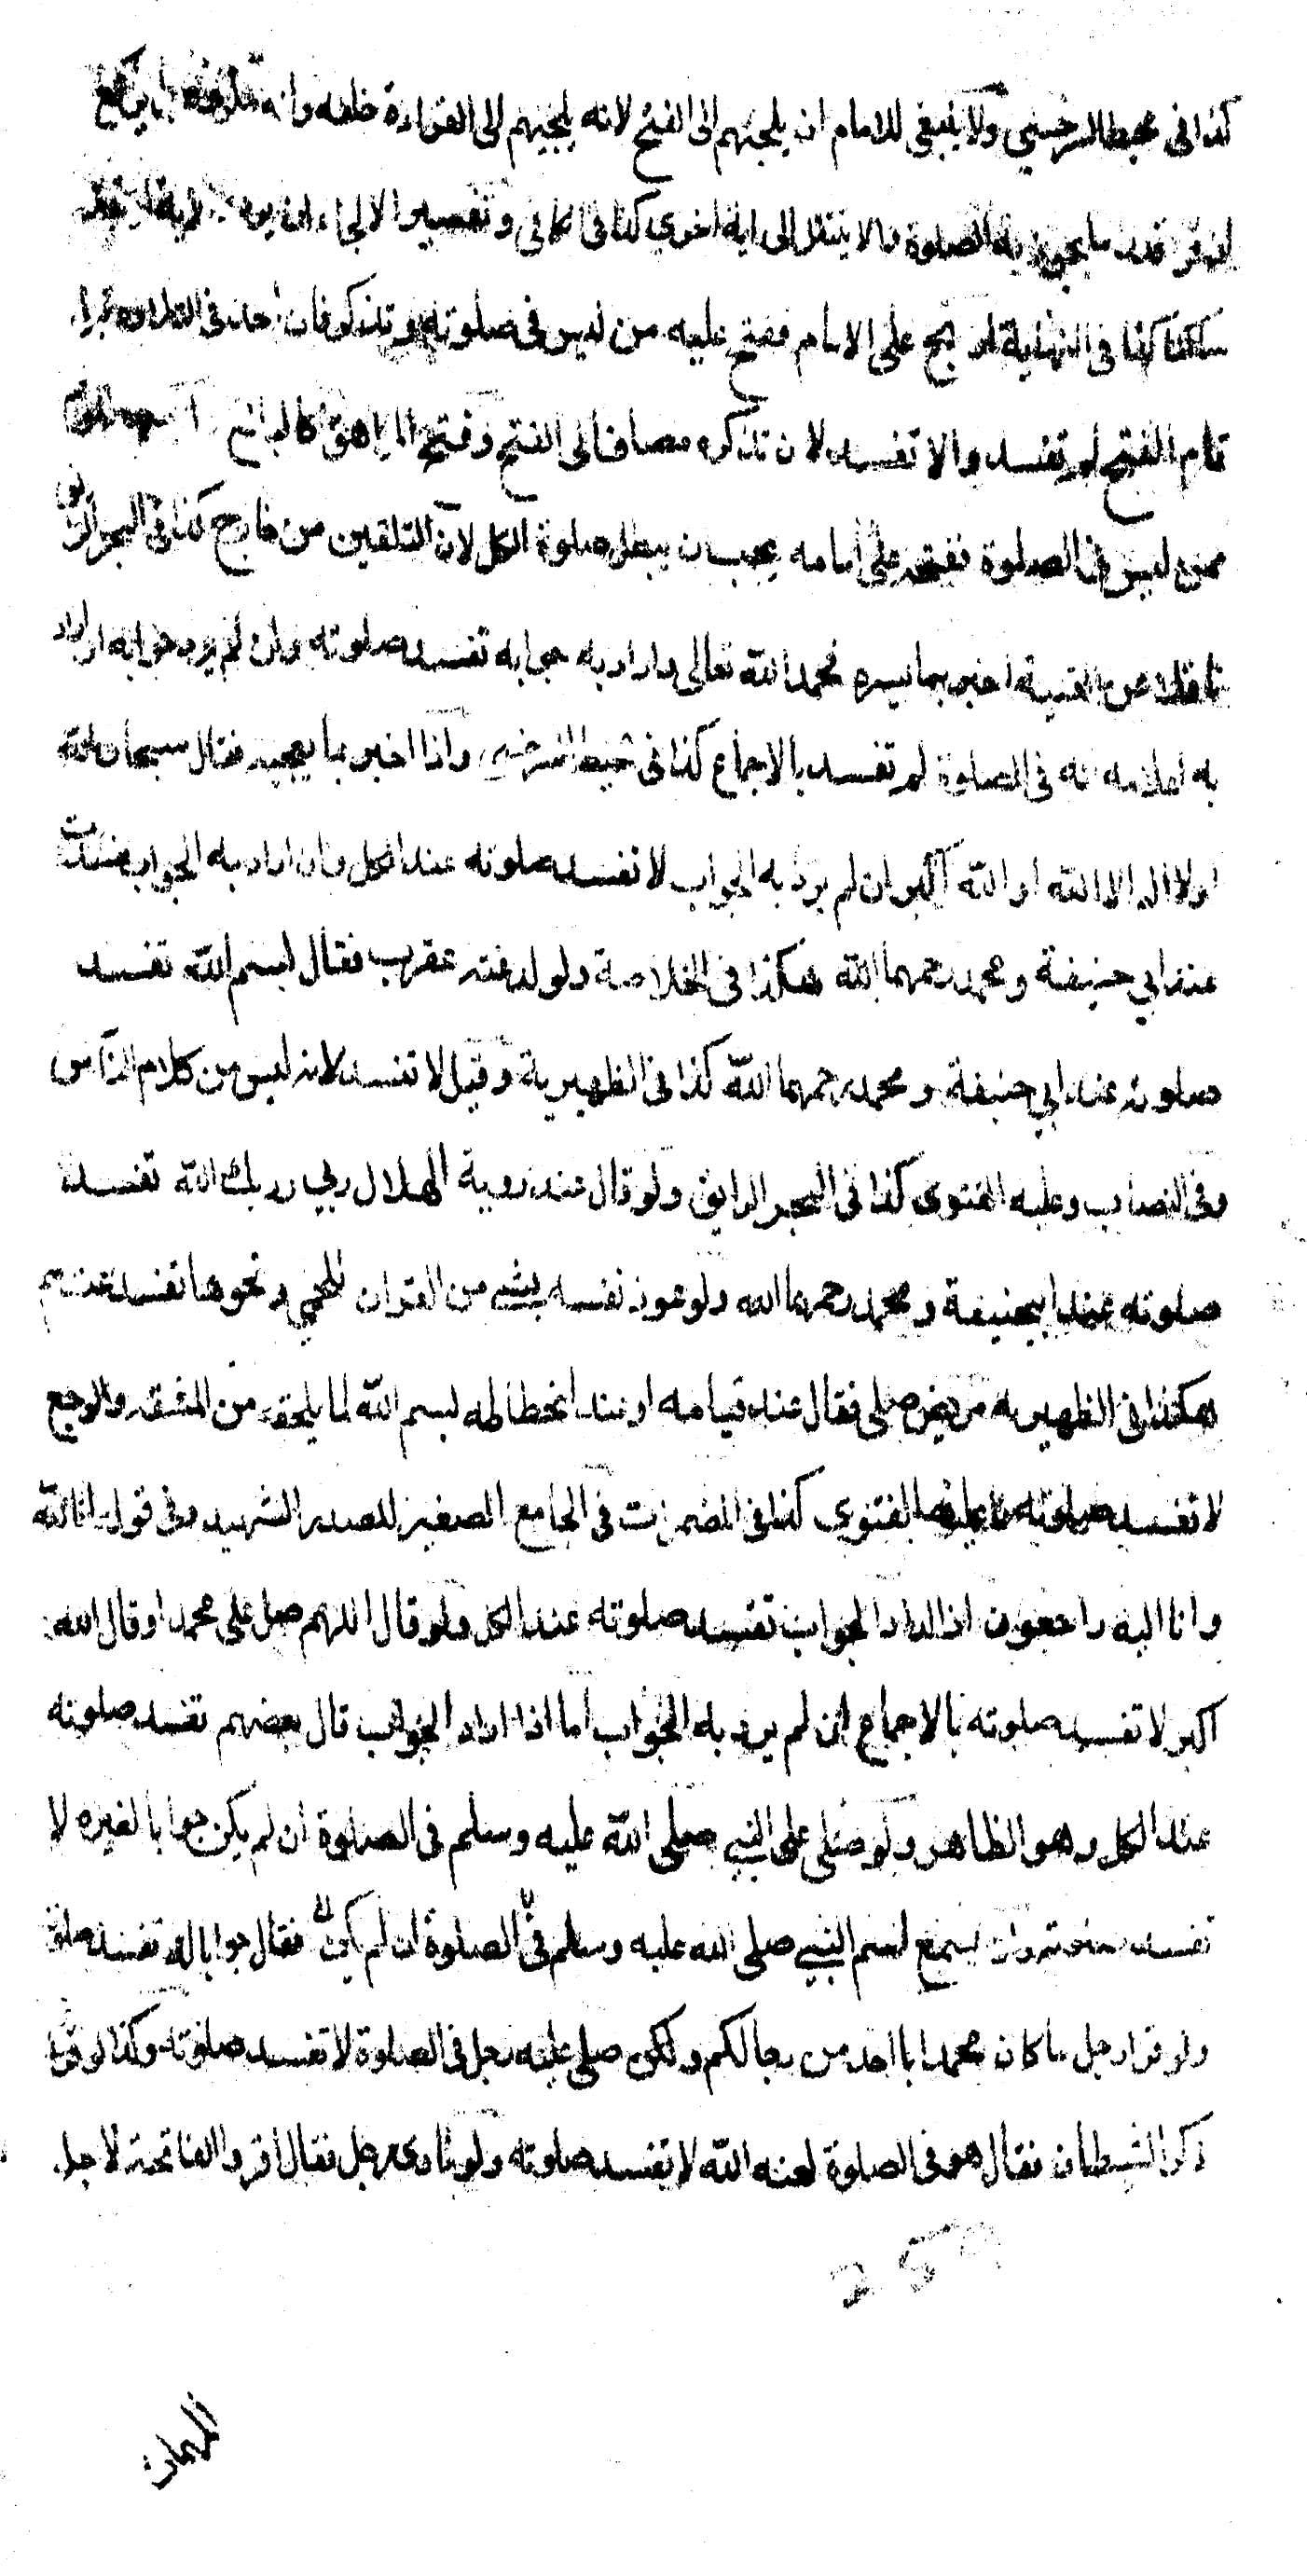 كذا فى محيط السرخسي ولا ينبغى للامام ان يلجئهم الى الفتح لانه يلجيهم الى القراءة خلفه وانه مكروه بل يركع
ان قرء قدر ما يجوز به الصلوة والا ينتقل الى اية اخرى كذا فى الكافى وتفسير الالجاء ان يردد الاية او يقف
ساكتا كذا فى النهاية ارتج على الامام ففتح عليه من ليس فى صلوته وتذكر فان اخذ فى التلاوة قبل
تمام الفتح لم تفسد والا تفسد لان تذكره مضاف الى الفتح وفتح المراهق كالبالغ
ممن ليس فى الصلوة ففتحه على امامه يجب ان يبطل صلوة الكل لان التلقين من خارج كذا فى البحر الرائق
ناقلا عن القنية اخبر بما يسره فحمد الله تعالى واراد به جوابه تفسد صلوته وان لم يرد جوابه او اراد
به اعلامه انه فى الصلوة لم تفسد بالاجماع كذا فى محيط السرخسي واذا اخبر بما يعجبه فقال سبحان الله
او لا اله الا الله او الله اكبر ان لم يرد به الجواب لا تفسد صلوته عند الكل وان اراد به الجواب فسدت
عند ابي حنيفة ومحمد رحمهما الله هكذا فى الخلاصة ولو لدغته عقرب فقال بسم الله تفسد
صلوته عند ابي حنيفة ومحمد رحمهما الله كذا فى الظهيرية وقيل لا تفسد لانه ليس من كلام الناس
وفى النصاب وعليه الفتوى كذا فى البحر الرايق ولو قال عند روية الهلال ربي وربك الله تفسد
صلوته عند ابيحنيفة ومحمد رحمهما الله ولو عوذ نفسه بشيء من القران للحمي ونحوها تفسد عندهم
هكذا فى الظهيرية مريض صلى فقال عند قيامه او عند انحطاطه بسم الله لما يلحقه من المشقة والوجع
لا تفسد صلوته وعليه الفتوى كذا فى المضمرات فى الجامع الصغير للصدر الشهيد وفى قوله انا لله
وانا اليه راجعون اذا اراد الجواب تفسد صلوته عند الكل ولو قال اللهم صل على محمد او قال الله
اكبر لا تفسد صلوته بالاجماع ان لم يرد به الجواب اما اذا اراد الجواب قال بعضهم تفسد صلوته
عند الكل وهو الظاهر ولو صلى على النبي صلى الله عليه وسلم فى الصلوة ان لم يكن جوابا لغيره لا
تفسد صلوته وان يسمع اسم النبي صلى الله عليه وسلم فى الصلوة ان لم يكن فقال جوابا له تفسد صلوته
ولو قرا رجل ما كان محمد ابا احد من رجالكم ولكن صلى عليه رجل فى الصلوة لا تفسد صلوته وكذا لو قرا
ذكر الشيطان فقال هو فى الصلوة لعنه الله لا تفسد صلوته ولو نادى رجل فقال اقروا الفاتحة لاجل
المهمات